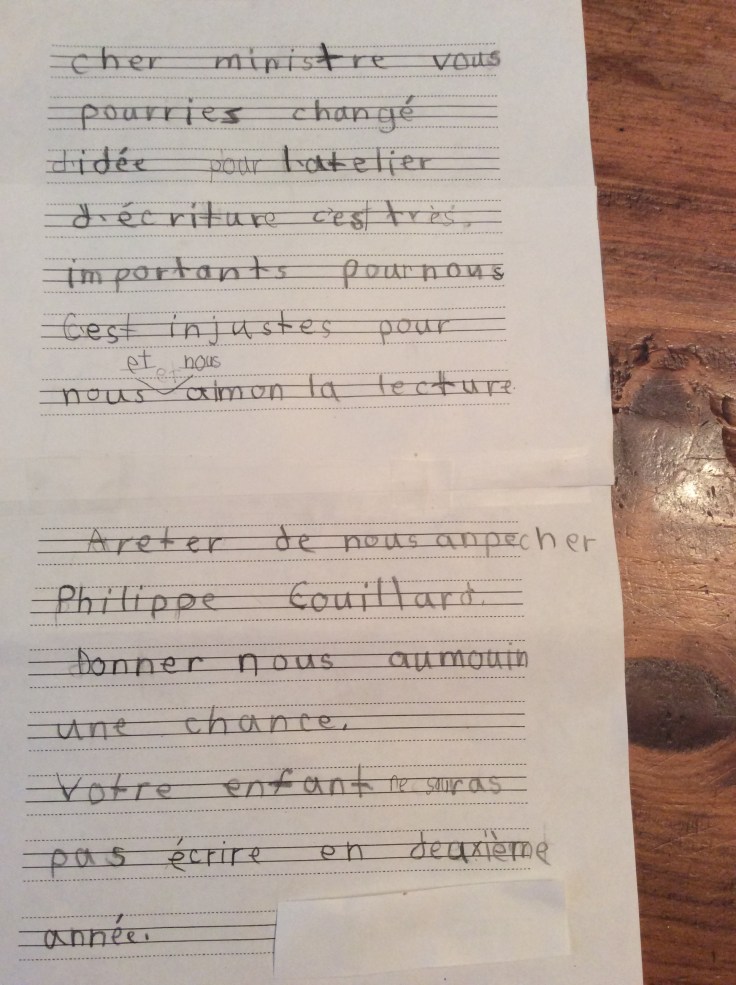 cher ministre vous
pourries changé
d'idée pour l'atelier
d'écriture c'est très
importants pour nous
C'est injustes pour
et nous
nous aimon la lecture
Areter de nous anpecher
Philippe Couillard.
Donner nous aumouin
une chance.
Votre enfant ne sauras
pas écrire en deuxième
année.